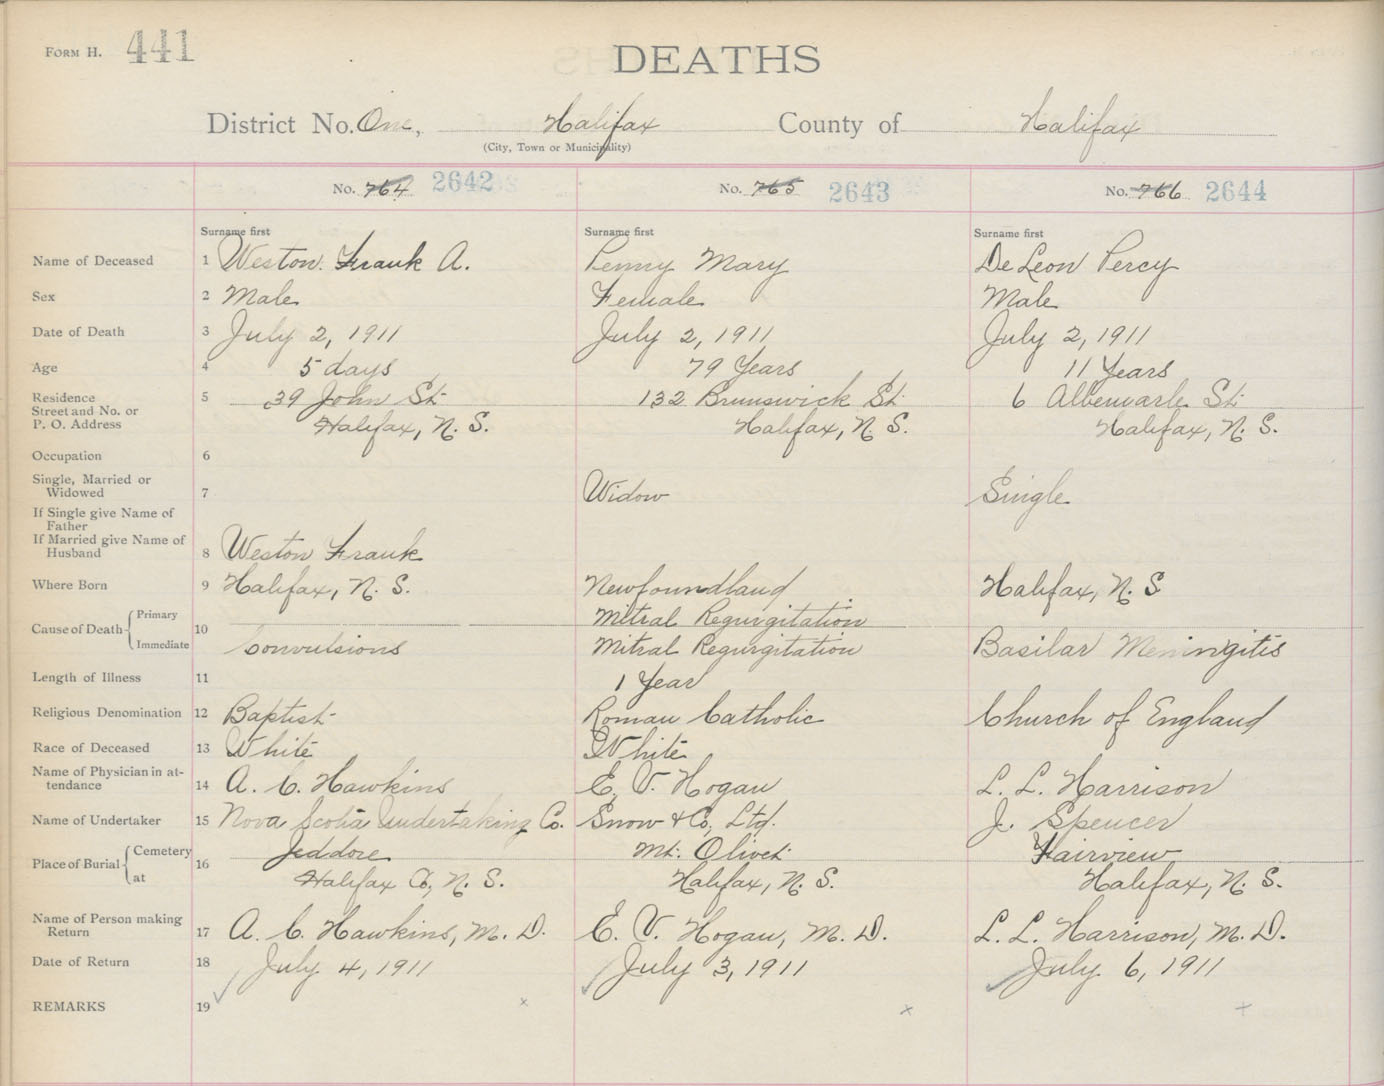 FORM H. 441
DEATHS
District No. One, Halifax County of Halifax
(City, Town or Municipality)
No. 764 2642 No. 765 2643 No. 766 2644
Surname first Surname first Surname first
Name of Deceased 1 Weston Frank A. Penny Mary De Leon Percy
Sex 2 Male Female Male
Date of Death 3 July 2, 1911 July 2, 1911 July 2, 1911
Age 4 5 days 79 Years 11 Years
Residence 5 39 John St. 132 Brunswick St. 6 Albemarle St.
Street and No. or
P. O. Address Halifax, N. S. Halifax, N. S. Halifax, N. S.
Occupation 6
Single, Married or
Widowed 7 Widow Single
If Single give Name of
Father
If Married give Name of
Husband 8 Weston Frank
Where Born 9 Halifax, N. S. Newfoundland Halifax, N. S
Cause of Death 10 Primary Mitral Regurgitation
Immediate Convulsions Mitral Regurgitation Basilar Meningitis
Length of Illness 11 1 Year
Religious Denomination 12 Baptist Roman Catholic Church of England
Race of Deceased 13 White White
Name of Physician in at-
tendance 14 A. C. Hawkins E. V. Hogan L. L. Harrison
Name of Undertaker 15 Nova Scotia Undertaking Co. Snow & Co, Ltd. J. Spencer
Place of Burial 16 Cemetery Jeddore Mt. Olivet Fairview
at Halifax Co, N. S. Halifax, N. S. Halifax, N. S.
Name of Person making
Return 17 A. C. Hawkins, M. D. E. V. Hogan, M. D. L. L. Harrison, M. D.
Date of Return 18 July 4, 1911 July 3, 1911 July 6, 1911
REMARKS 19